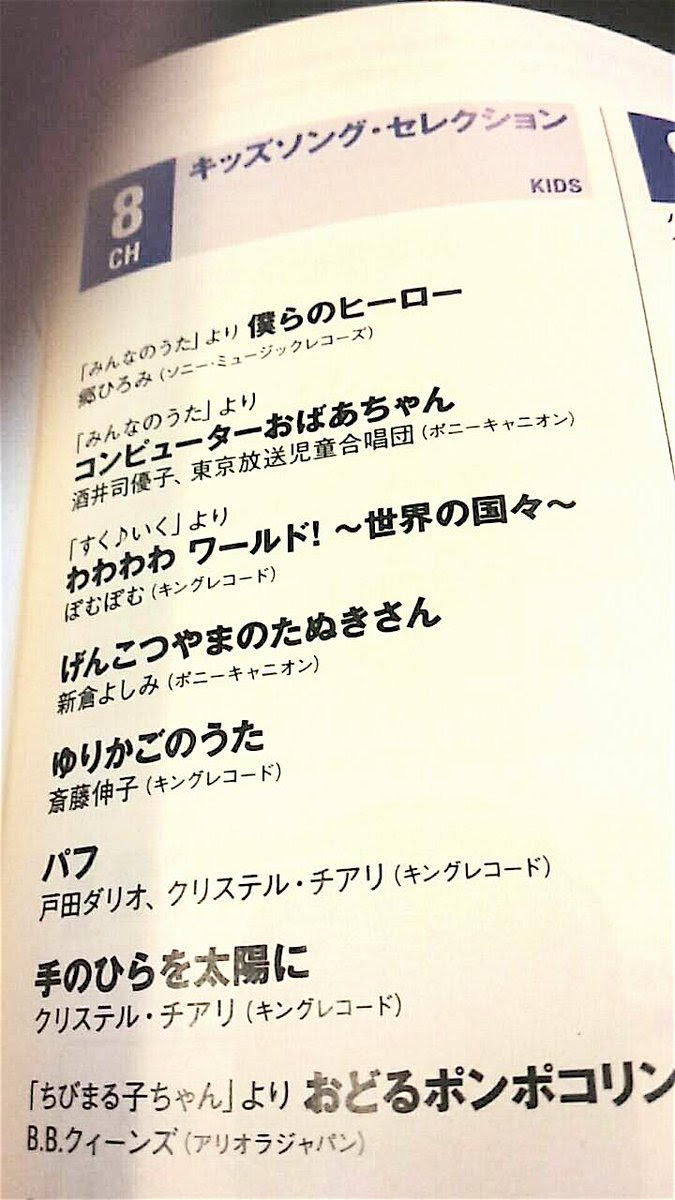 8
CH
キッズソング・セレクション
KIDS
「みんなのうた」より 僕らのヒーロー
郷ひろみ（ソニー・ミュージックレコーズ）
「みんなのうた」より
コンピューターおばあちゃん
酒井司優子、東京放送児童合唱団（ポニーキャニオン）
「すく♪いく」より
わわわわ ワールド! 〜世界の国々〜
ぽむぽむ（キングレコード）
げんこつやまのたぬきさん
新倉よしみ（ポニーキャニオン）
ゆりかごのうた
斎藤伸子（キングレコード）
パフ
戸田ダリオ、クリステル・チアリ（キングレコード）
手のひらを太陽に
クリステル・チアリ（キングレコード）
「ちびまる子ちゃん」より おどるポンポコリン
B.B.クィーンズ（アリオラジャパン）